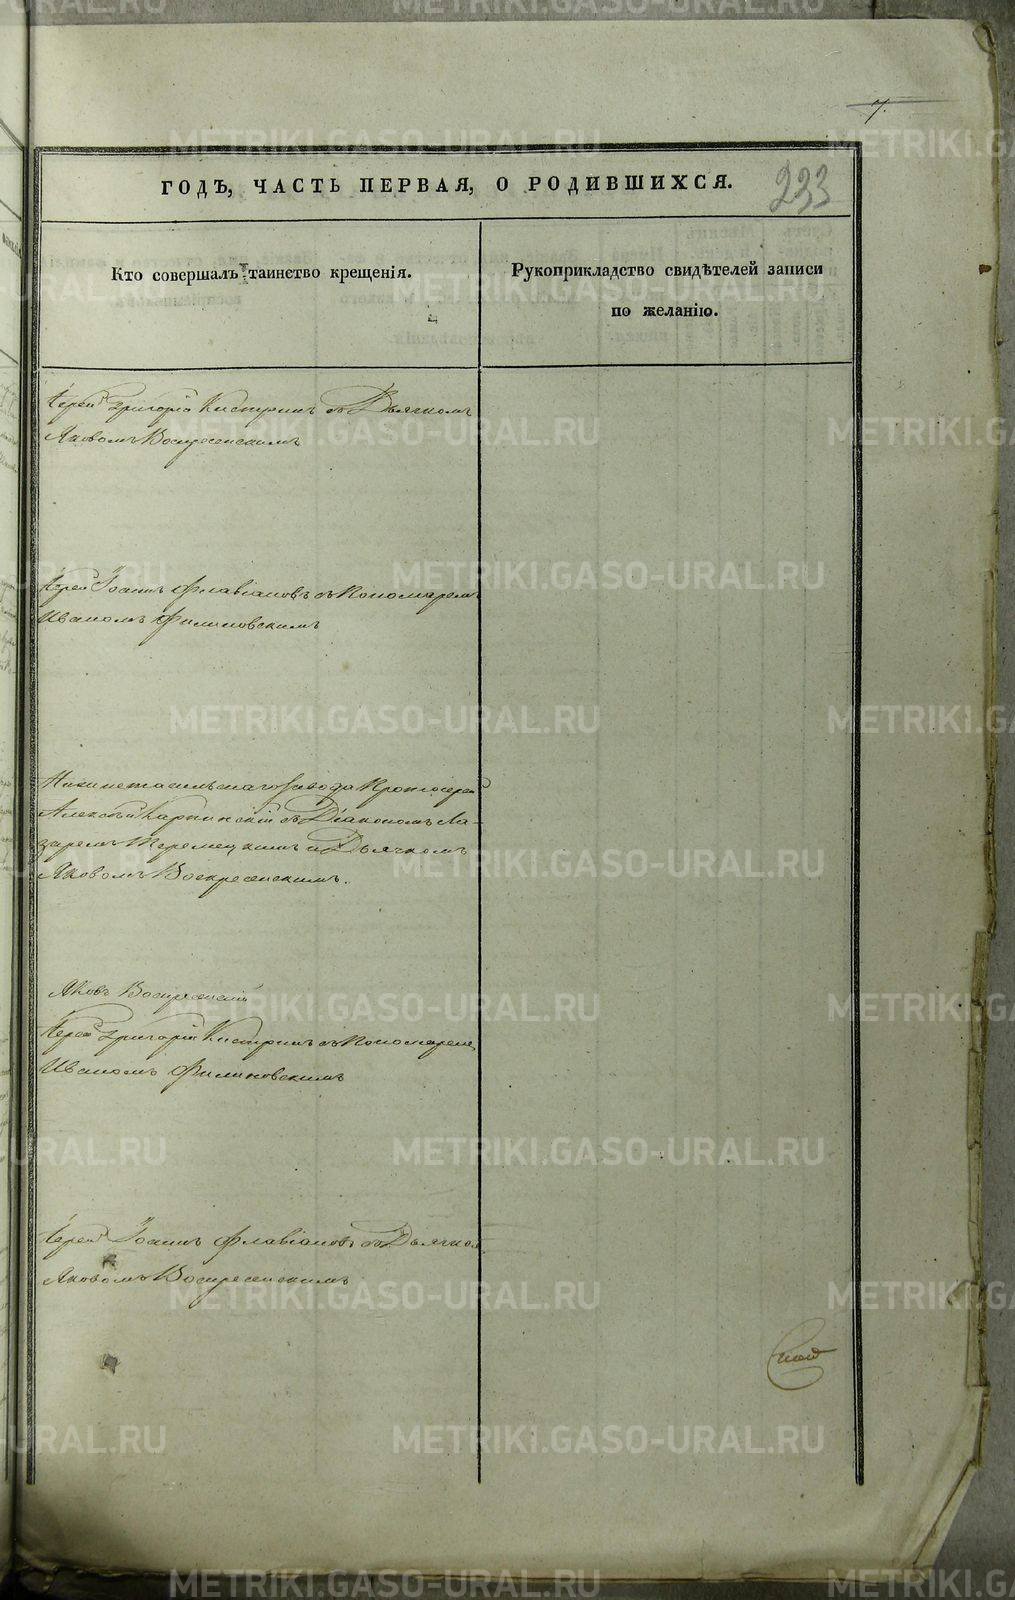 7.
ГОДЪ, ЧАСТЬ ПЕРВАЯ, О РОДИВШИХСЯ.
233
Кто совершалъ таинство крещенія.
Рукоприкладство свидѣтелей записи
по желанію.
Іерей Григорій Кистринъ съ Дьячкомъ
Яковомъ Воскресенскимъ
Іерей Іоаннъ Флавіановъ съ Пономаремъ
Иваномъ Филиновскимъ
Нижнетагильскаго Завода Протоіерей
Алексѣй Карпинскій съ Діакономъ Ла-
заремъ и Дьячкомъ
Яковомъ Воскресенскимъ.
Яковъ Воскресенскій
Іерей Григорій Кистринъ съ Пономаремъ
Иваномъ Филиновскимъ
Іерей Іоаннъ Флавіановъ съ Дьячком
Яковомъ Воскресенскимъ
METRIKI.GASO-URAL.RU